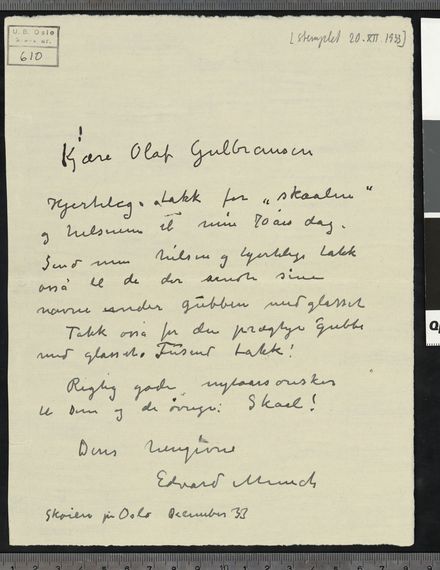 U. B. Oslo
610
[stemplet 20. XII. 1933]
Kjære Olaf Gulbransson
Hjertelig takk for „skaalen“
og hilsenen til min 70 års dag.
Send min hilsen og hjertelige takk
osså til de der sendte sine
navne under gubben med glasset
Takk osså for den prægtige gubbe
med glasset. Tusend takk!
Rigtig gode nytaarsønsker
til Dem og de øvrige. Skaal!
Deres hengivne
Edvard Munch
Skøien pr Oslo December 33